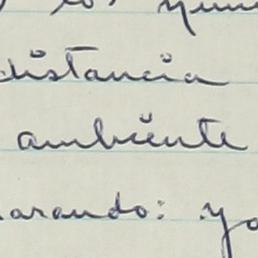 los
distancia
ambiente
arando: yo